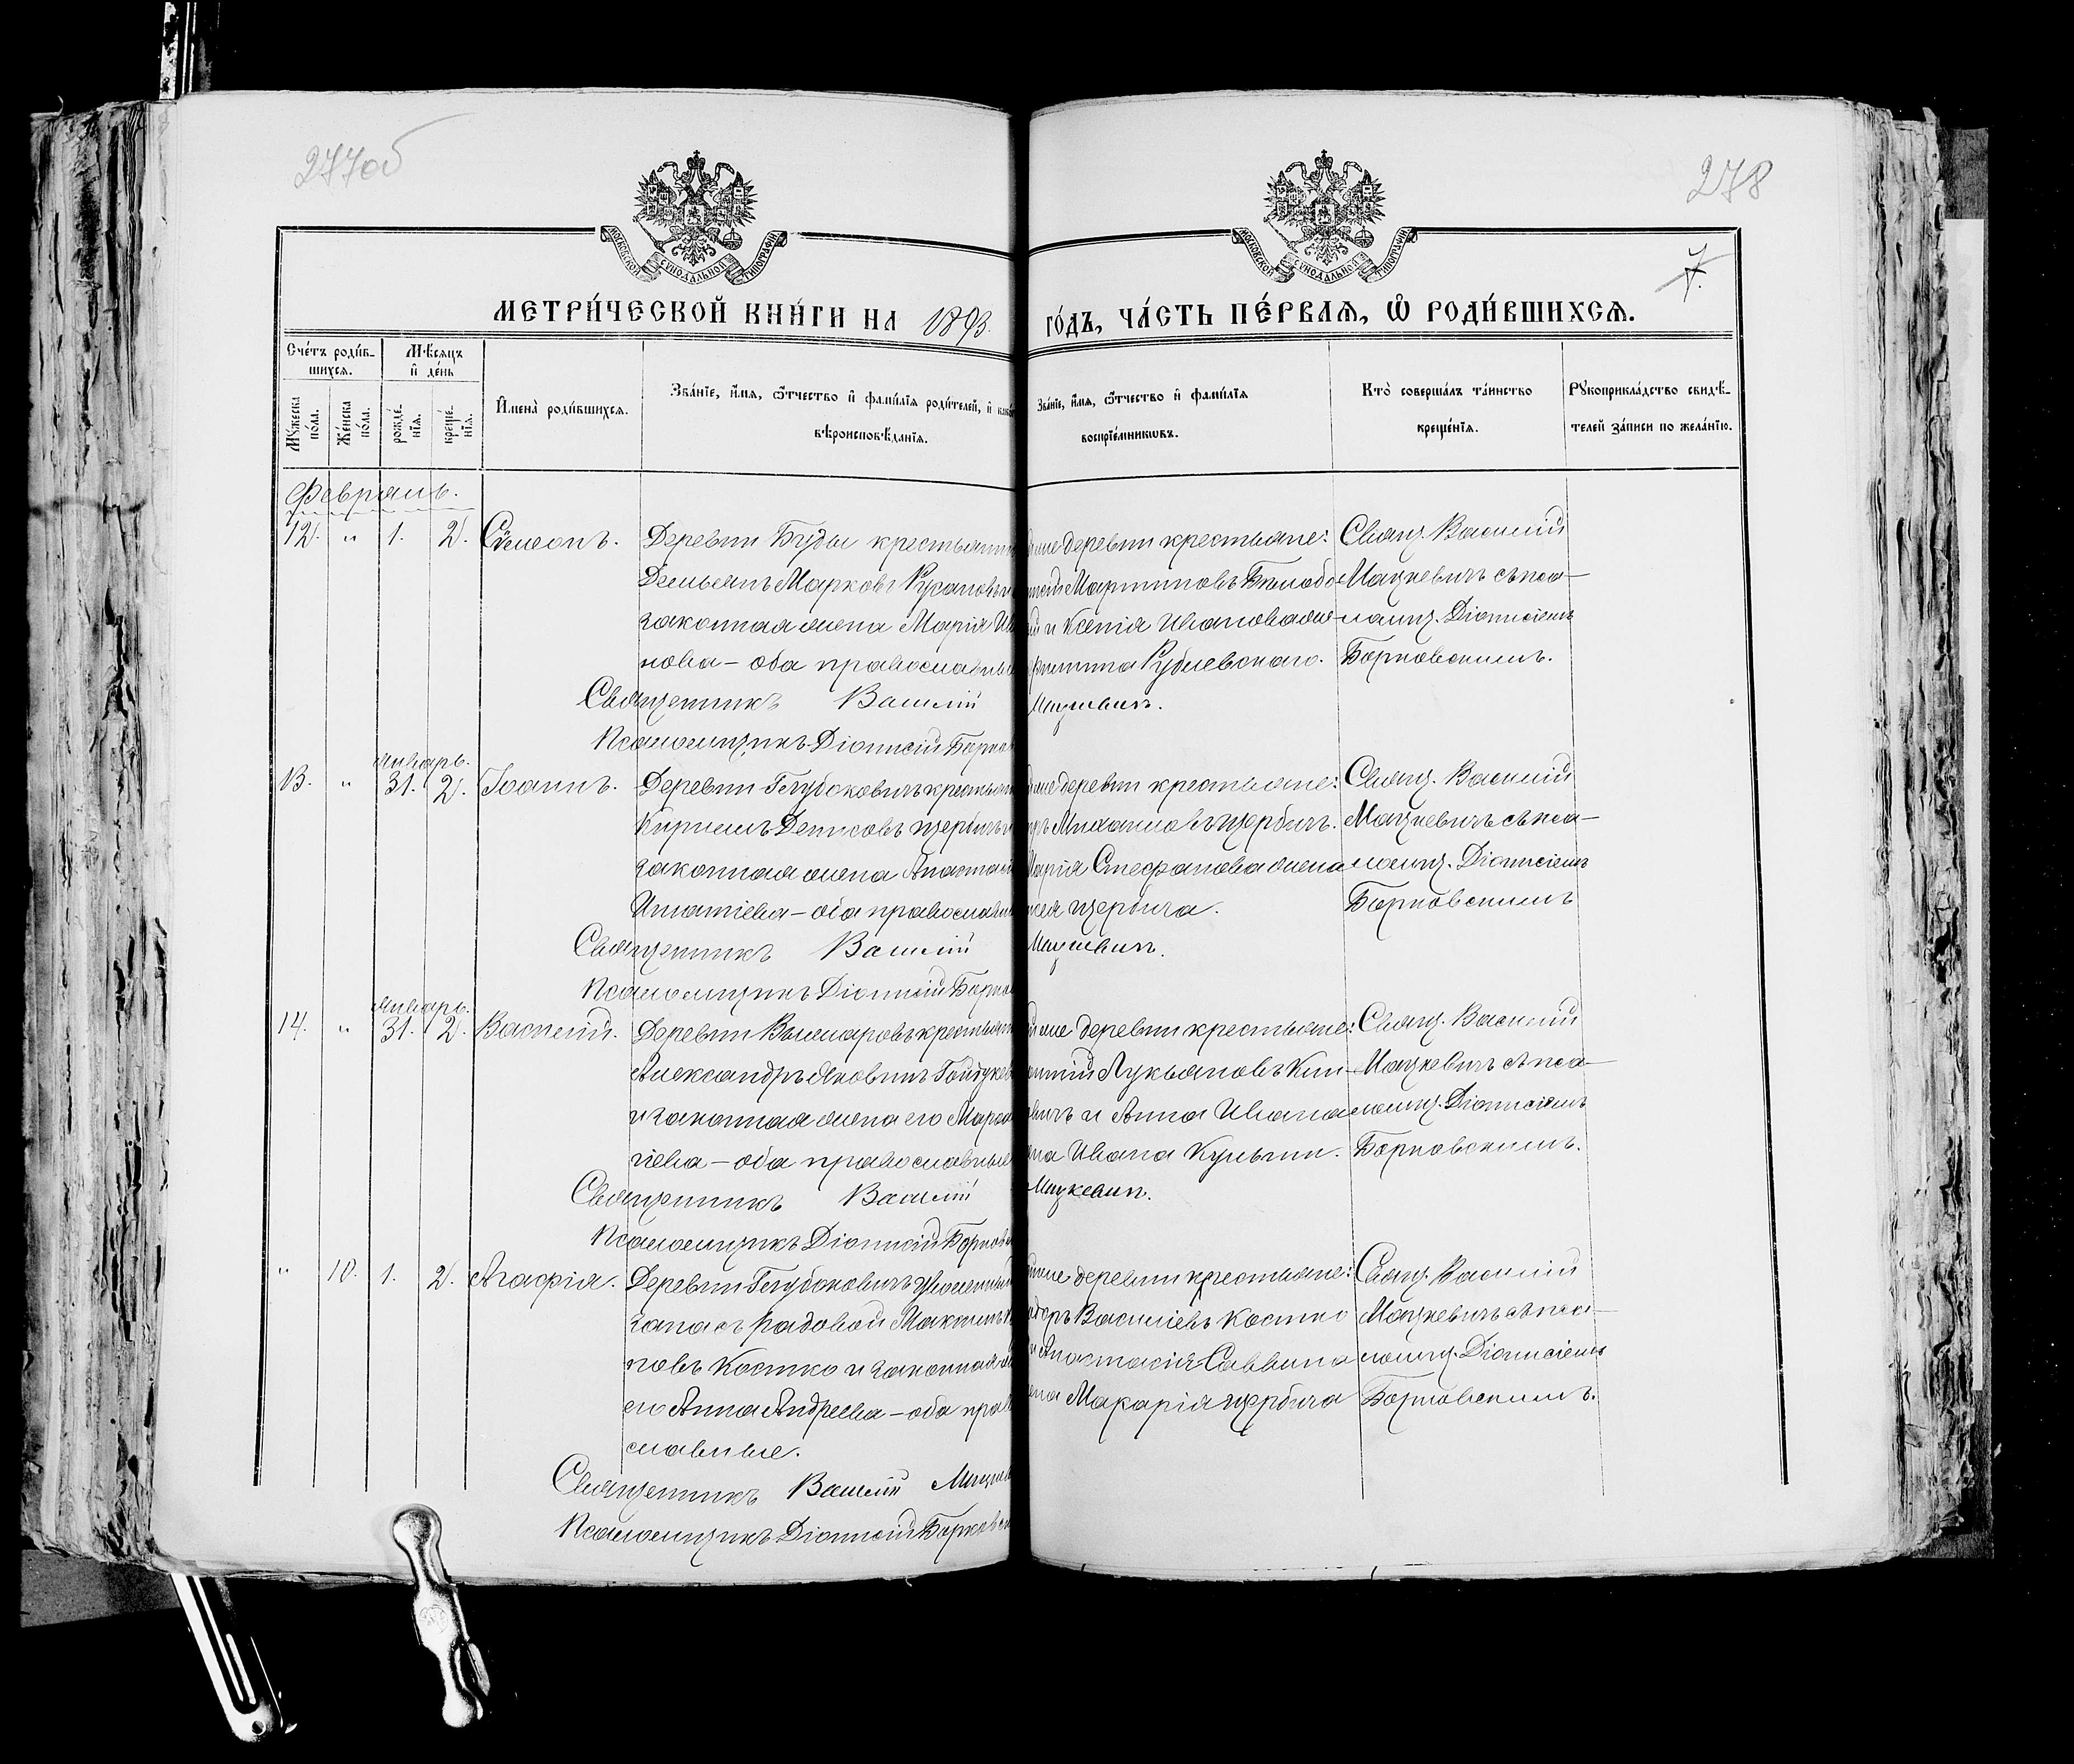 277об
278
7.
МОСКОВСКОЙ СУНОДАЛЬНОЙ ТИПОГРАФІИ
МОСКОВСКОЙ СУНОДАЛЬНОЙ ТИПОГРАФІИ
МЕТРИ́ЧЕСКОЙ КНИ́ГИ НА 1893.
ГО́ДЪ, ЧА́СТЬ ПЕ́РВАЯ, Ѡ РОДИ́ВШИХСЯ.
Сче́тъ роди́в-
шихся.
Мѣсяцъ
и де́нь
Му́жеска
по́ла.
Же́нска
по́ла.
рожде́-
нія.
креще́-
нія.
Имена̀ роди́вшихся.
Зва́ніе, и́мя, ѻ́тчество и фами́лія роди́телей, и како́
вѣроисповѣданія.
Зва́ніе, и́мя, ѻ́тчество и фами́лія
воспріе́мниковъ.
Кто̀ соверша́лъ та́инство
креще́нія.
Рꙋкоприкла́дство свидѣ́-
телей за́писи по жела́нію.
Февраль.
12. " 1. 2. Сѵмеонъ.
Деревни Буды крестьянин
Демьянъ Марковъ Русановъ и
законная жена Марія Ив
нова – оба православные
Священникъ Василій
Псаломщикъ Діонисій Борков
деревни крестьяне:
Мартиновъ
и Ксенія Иванова
Рублевскаго.
Мацкевичъ.
Свящ. Василій
Мацкевичъ съ пса-
ломщ. Діонисіемъ
Борковскимъ.
Январь.
13. " 31. 2. Іоаннъ.
Деревни Глубоковичъ крестьян
Кириллъ Денисовъ Щербичъ и
законная жена Анастасі
Игнатіева – оба православн
Священникъ Василій
Псаломщикъ Діонисій Борков
деревни крестьяне:
Михаиловъ Щербичъ.
Марія Стефанова жена
Щербича.
Мацкевичъ.
Свящ. Василій
Мацкевичъ съ пса-
ломщ. Діонисіемъ
Борковскимъ
Январь.
14. " 31. 2. Василій.
Деревни крестьян
Александръ Яковлевъ Гайдукев
и законная жена его
гіева – оба православные
Священникъ Василій
Псаломщикъ Діонисій Борковс
деревни крестьяне:
Лукьяновъ
и Анна Ивана
Ивана
Мацкевичъ.
Свящ. Василій
Мацкевичъ съ пса-
ломщ. Діонисіемъ
Борковскимъ.
" 10. 1. 2. Агафія.
Деревни Глубоковичъ уволенный
запасъ рядовой Максимъ
новъ Костко и законная ж
его Анна Андреева – оба прав
славные.
Священникъ Василій Мацкев
Псаломщикъ Діонисій Борковск
деревни крестьяне:
Василіевъ Костко
и Анастасія Саввина
Макарія Щербича
Свящ. Василій
Мацкевичъ съ пса-
ломщ. Діонисіемъ
Борковскимъ.